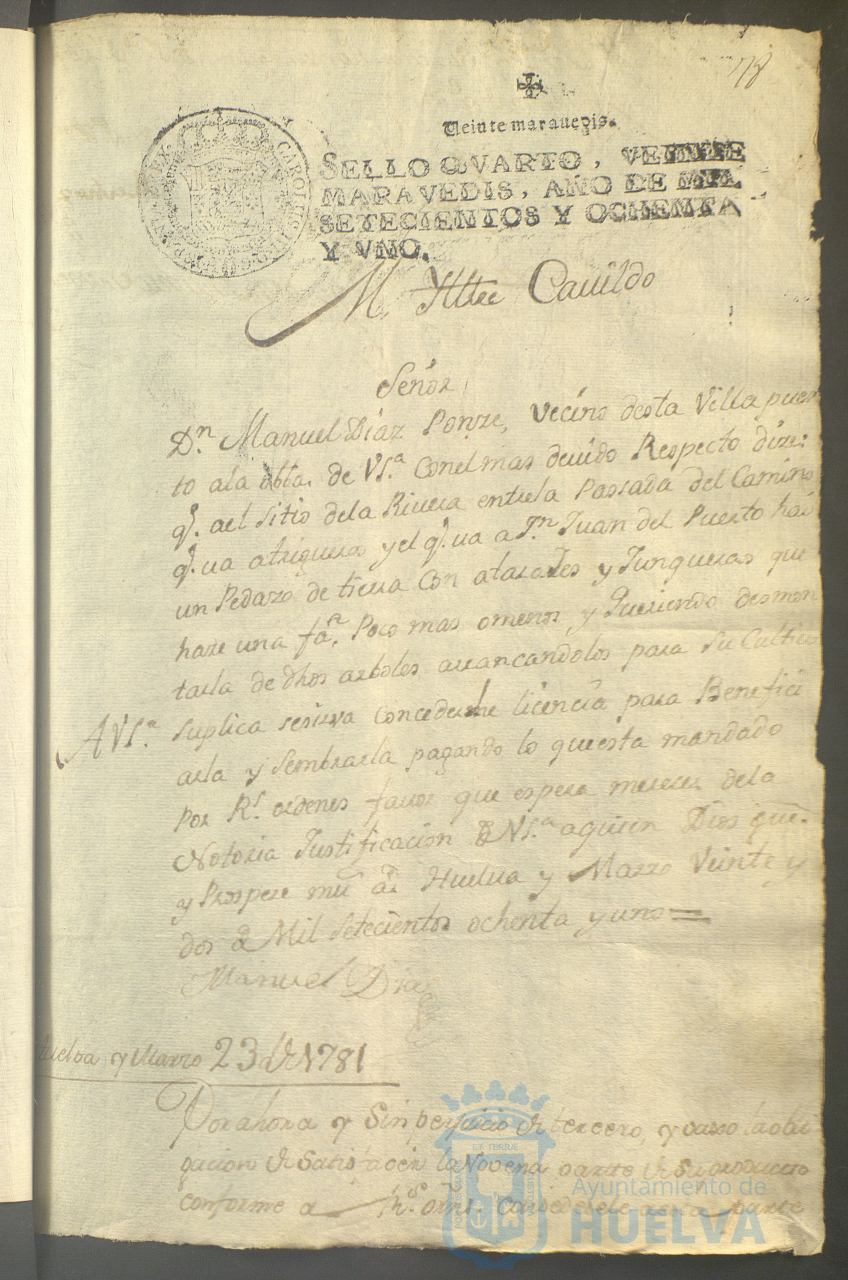 178
Veinte maravedis.
SELLO QVARTO, VEINTE
MARAVEDIS, AÑO DE MIL
SETECIENTOS Y OCHENTA
Y VNO.
M. Yltre Cavildo
Señor
Dn Manuel Diaz Ponze, vecino desta Villa pues
to ala obba. de VSa. Conelmas devido Respecto dize:
q. ael sitio dela Rivera entrela Passada del Camino
q. va atrigueros y el q. va a Sn Juan del Puerto hai
un Pedazo de tierra Con atarajes y Junqueras que
haze una fAa. Poco mas omenos y Queriendo desmon
tarla de dhos arboles arrancandolos para su Cultivo
AVSa. Suplica sesirva Concederle licencia para Benefici
arla y Sembrarla pagando lo questa mandado
Por Rs ordenes favor que espera merecer dela
Notoria Justificacion de VSa. aquien Dios gue.
y Prospere ms as. Huelva y Marzo Veinte y
dos de Mil Setecientos ochenta y uno=
Manuel Diaz
Huelva y Marzo 23 de 1781
Por ahora y Sin perjuicio de tercero, y vaxo la obli
gacion de Satisfacer la Novena parte de Su producto
conforme a Rs. Orns. Concedesele a esta parte
Ayuntamiento de
HUELVA